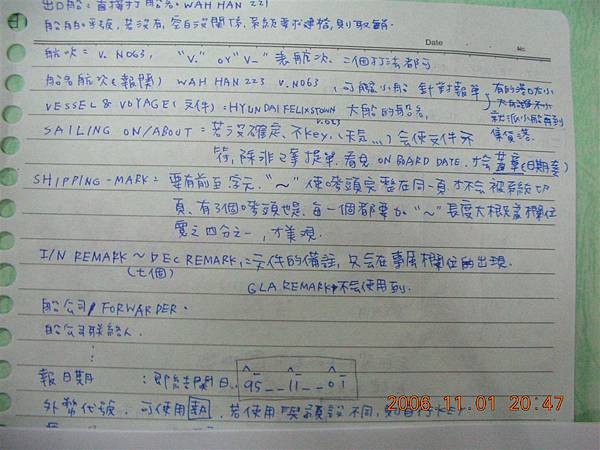 出口船：直接打船名。WAH HAN 221
船舶呼號，若沒有，空白沒關係，系統要求連結，則取解.
Date No.
航次：V. N063, "V." or "V-" 表航次. 二個打法都可
船名航次(報關) WAH HAN 223 V.N063, 可解小船 針對報單
有的港口太小
大船進不
就派小船
集貨港.
VESSEL & VOYAGE(文件)：HYUNDAI FELIXSTOWN 大船的船名,
SAILING ON/ABOUT：若沒確定, 不key. 會使文件不
符, 除非已拿提單, 看見 ON BOARD DATE. 才會蓋章(日期章)
SHIPPING-MARK：要有前置字元. "~" 使嘜頭完整在同一頁, 才不會被系統切
頁. 有3個嘜頭也是. 每一個都要加 "~" 長度大概是欄位
寬之四分之一, 才美觀.
I/N REMARK ~ DEC REMARK, 文件的備註, 只會在專屬欄位的出現.
(七個)
GLA REMARK 不會使用到.
船公司/FORWARDER.
船公司聯絡人.
報日期 : 即結關日. 95__11__01
外幣代號. 可使用 若使用 與預設不同, 如自行KEY
2006.11.01 20:47